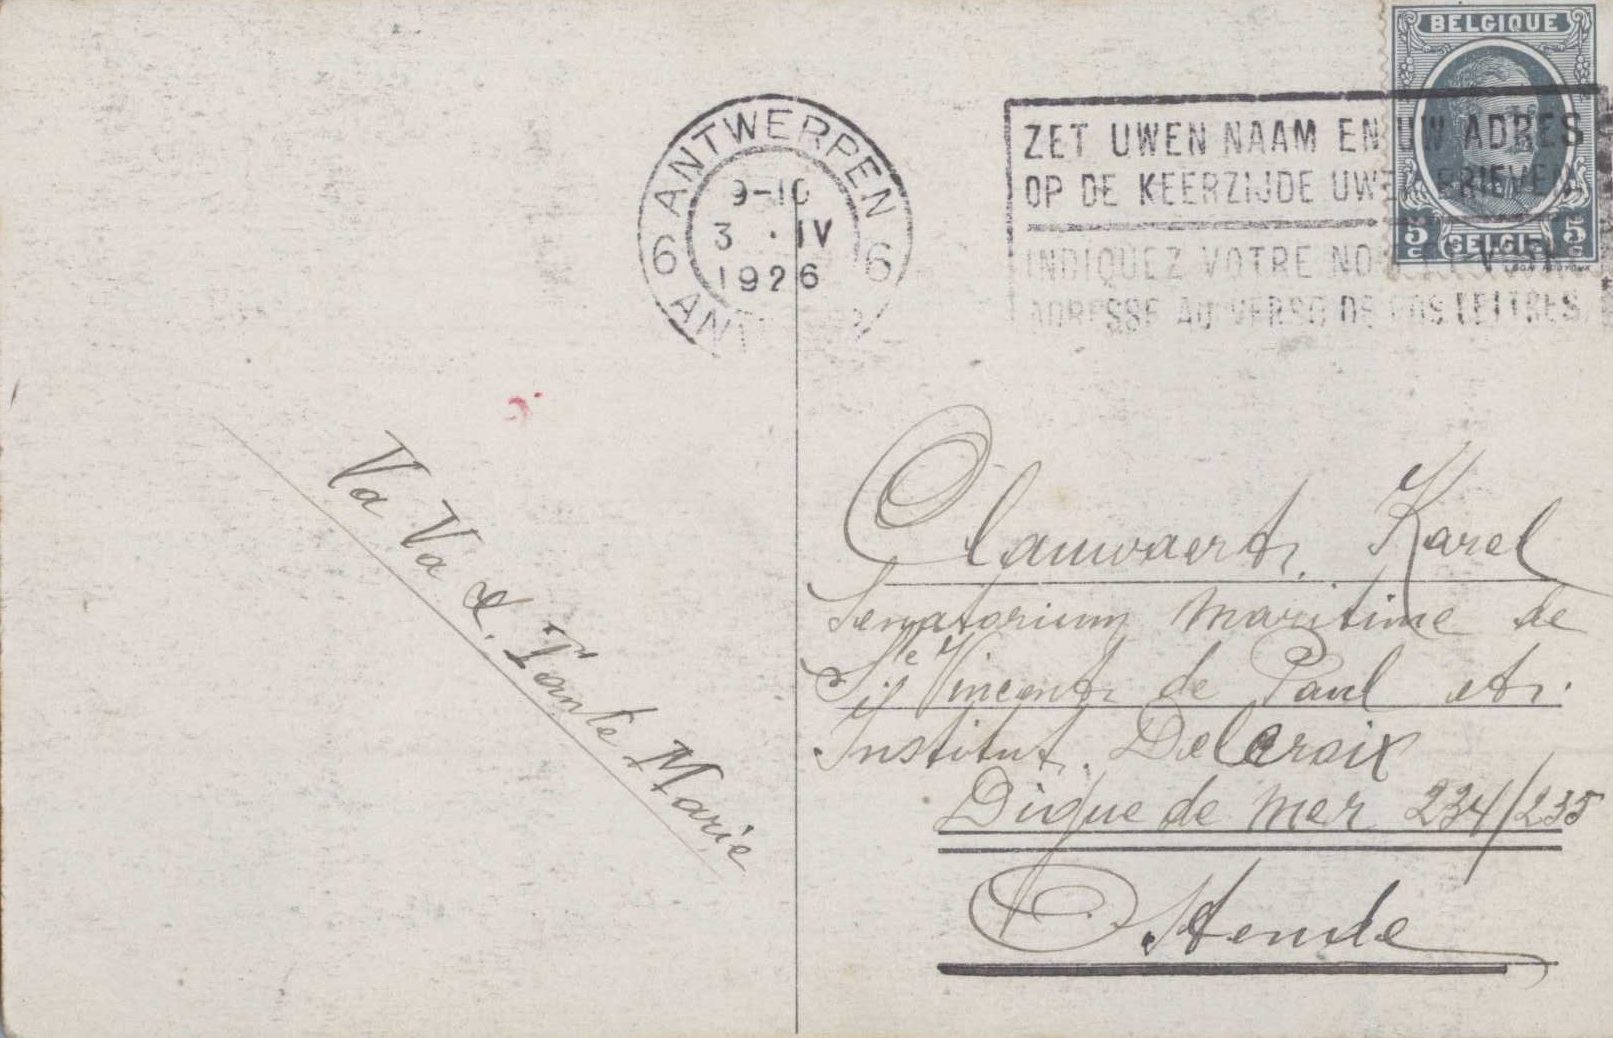 BELGIQUE
5 c BELGIË 5 c
ANTWERPEN
9-10
3 · IV
1926
6 6
ANT
ZET UWEN NAAM EN UW ADRES
OP DE KEERZIJDE UWER BRIEVEN
INDIQUEZ VOTRE NOM ET VOTRE
ADRESSE AU VERSO DE VOS LETTRES
Va Va &. Tante Marie
Clauwaert. Karel
Senatorium Maritime de
Ste Vincent de Paul et.
Institut. Delcroix
Digue de Mer 234/235
Ostende